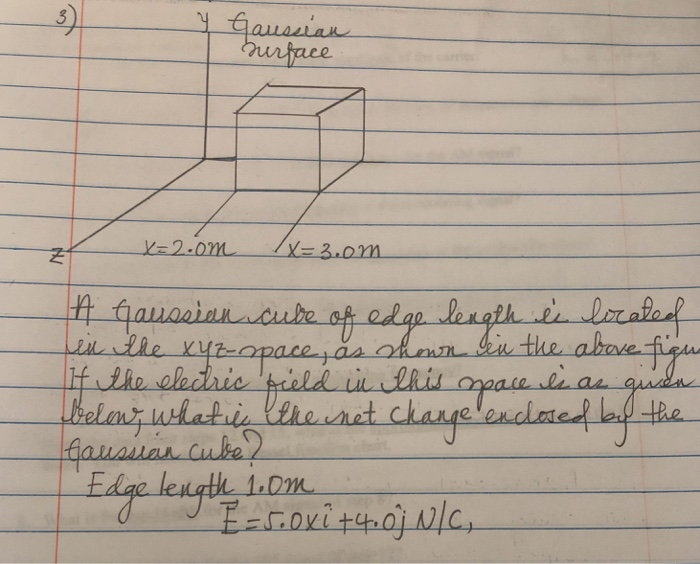 3)
y Gaussian
surface
z
x=2.0m x=3.0m
A Gaussian cube of edge length is located
in the xyz-space, as shown in the above figu
If the electric field in this space is as given
below, what is the net change enclosed by the
Gaussian cube?
Edge length 1.0m
E⃗ = 5.0xî + 4.0ĵ N/C,